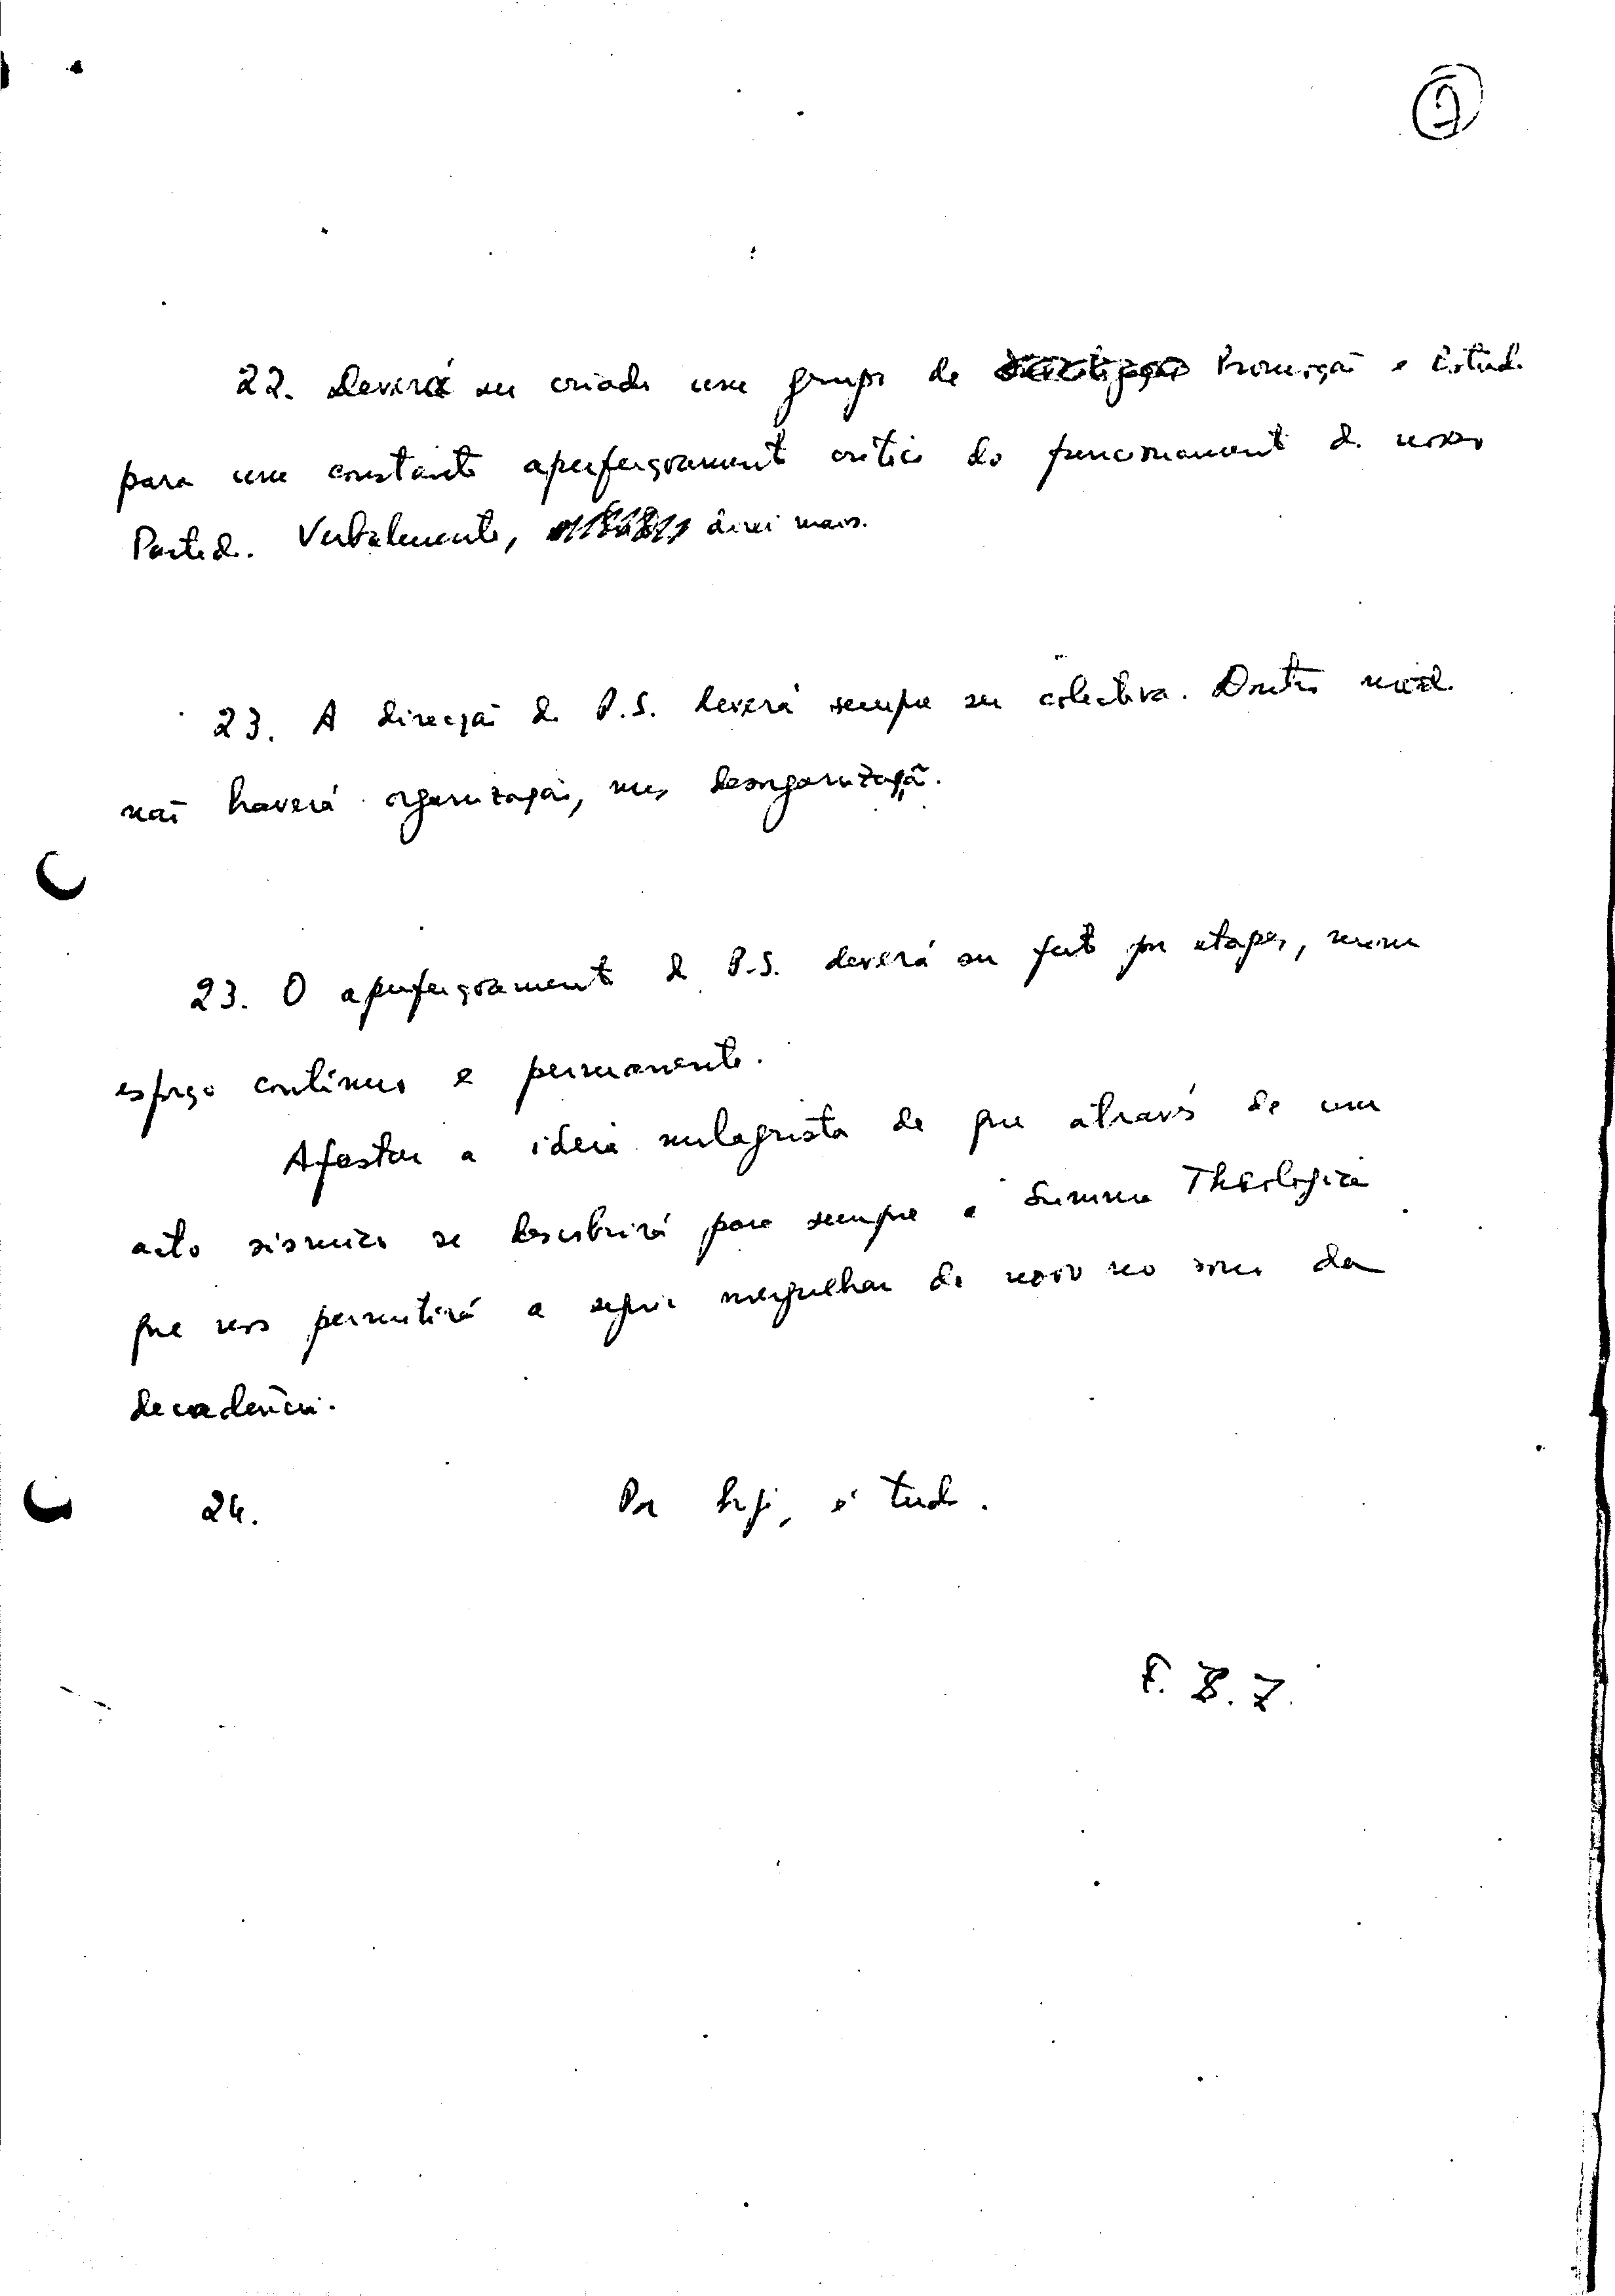 9
22. Deverá ser criado um grupo de Promoção e Estudo
para um constante aperfeiçoamento crítico do funcionamento do nosso
Partido. Verbalmente, direi mais.
23. A direcção do P.S. deverá sempre ser colectiva. Doutro modo
não haverá organização, mas desorganização.
23. O aperfeiçoamento do P.S. deverá ser feito por etapas, num
esforço contínuo e permanente.
Afastar a ideia milagrista de que através de um
acto sísmico se descobrirá para sempre a Summa Theologica
que nos permitirá a seguir mergulhar de novo no sono da
decadência.
24. Por hoje, é tudo.
F. B. Z.